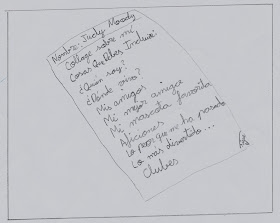 Nombre: Judy Moody
Collage sobre mí
Cosas que debes incluir:
¿Quién soy?
¿Dónde vivo?
Mis amigos
Mi mejor amigo
Mi mascota favorita
Aficiones
Lo peor que me ha pasado
Lo más divertido...
Clubes